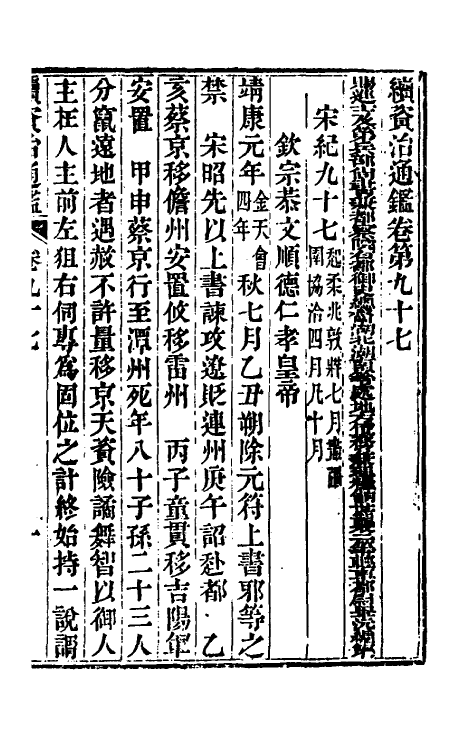 續資治通鑑卷第九十七
宋紀九十七起柔兆敦牂七月盡彊圉協洽四月凡十月
欽宗恭文順德仁孝皇帝
靖康元年金天會四年秋七月乙丑朔除元符上書邪等之
禁　宋昭先以上書諫攻遼貶連州庚午詔赴都　乙
亥蔡京移儋州安置攸移雷州　丙子童貫移吉陽軍
安置　甲申蔡京行至潭州死年八十子孫二十三人
分竄遠地者遇赦不許量移京天資險譎舞智以御人
主在人主前左狙右伺專為固位之計終始持一說謂
續資治通鑑　卷九十七　一